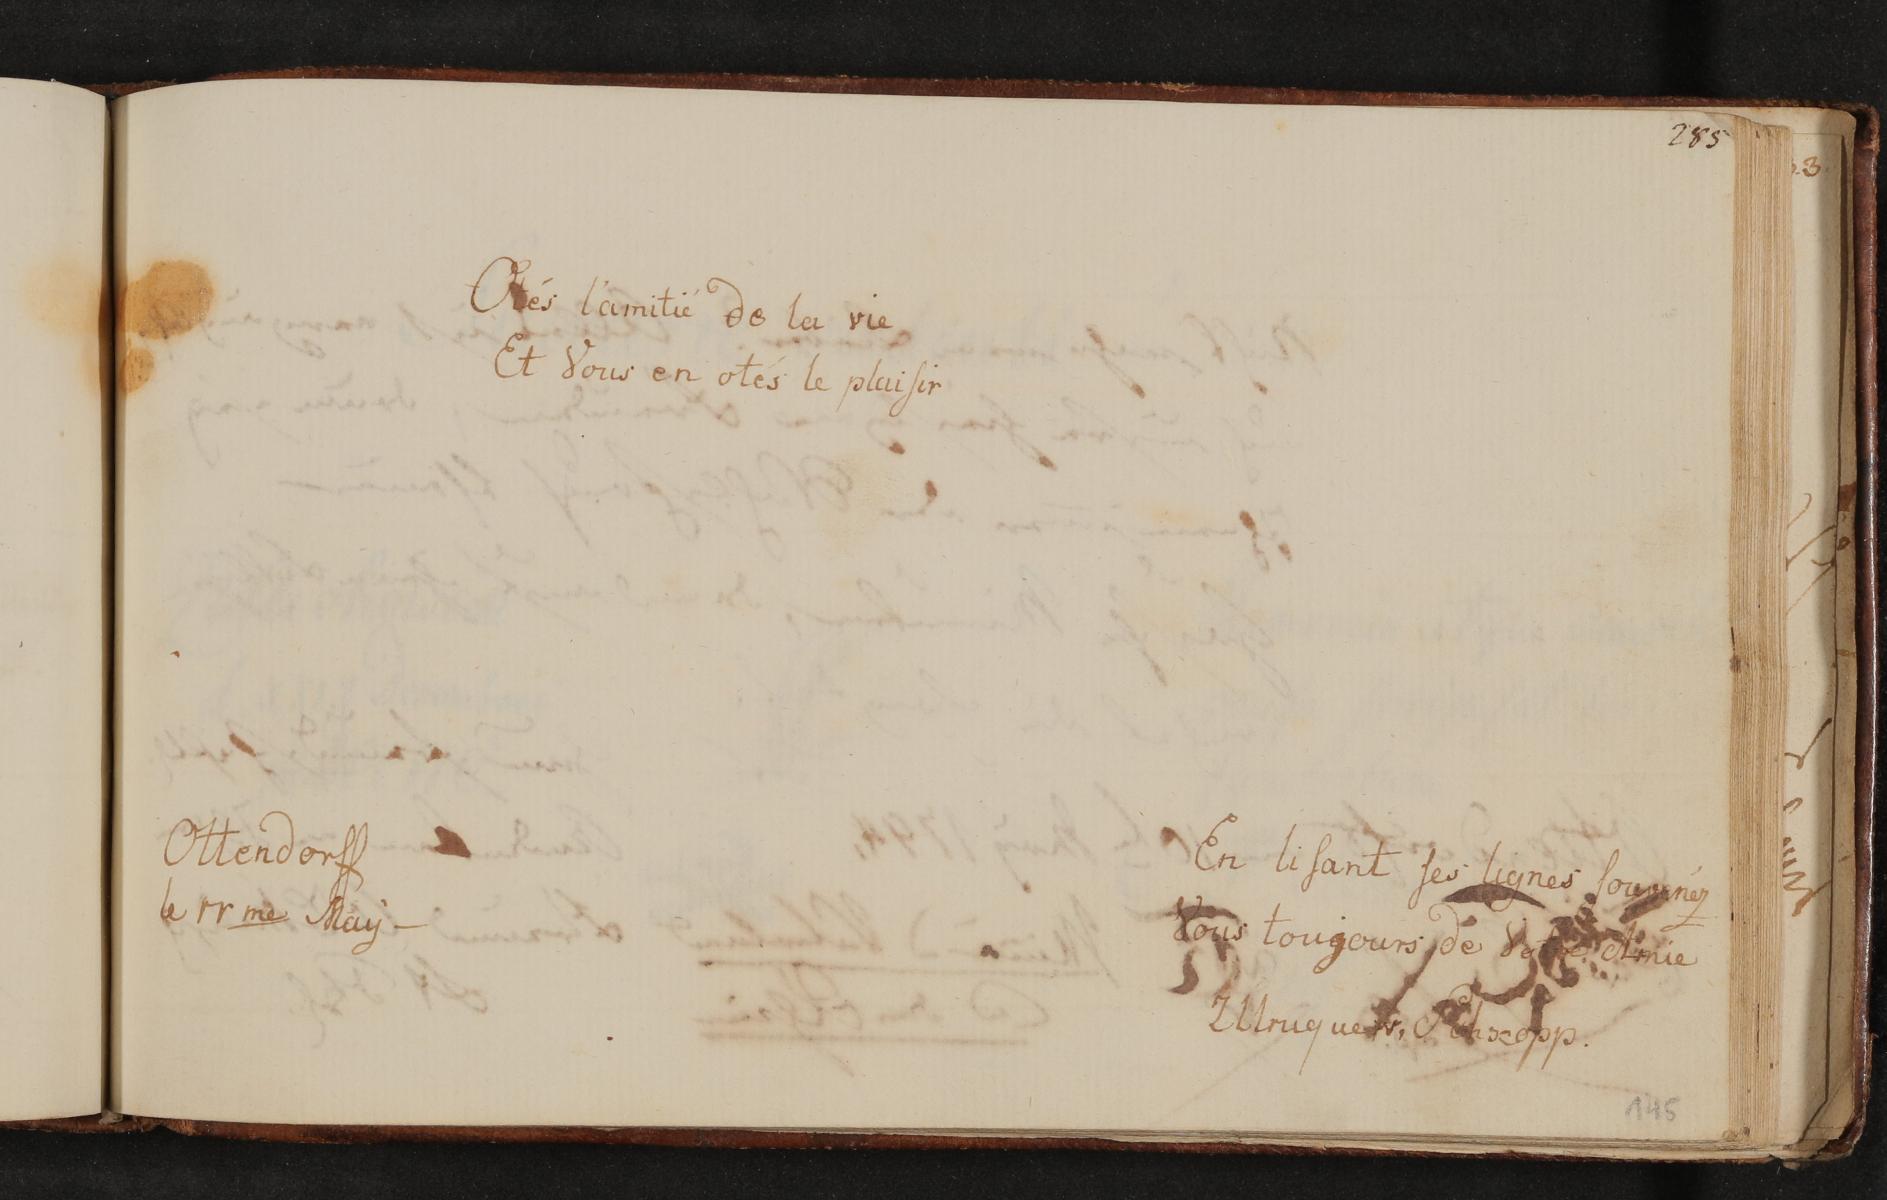 285
Otés l'amitié de la vie
Et Vous en otés le plaisir
Ottendorff
le rr me May
En lisant ses lignes souvenéz
Vous tougours de Votre Amie
145